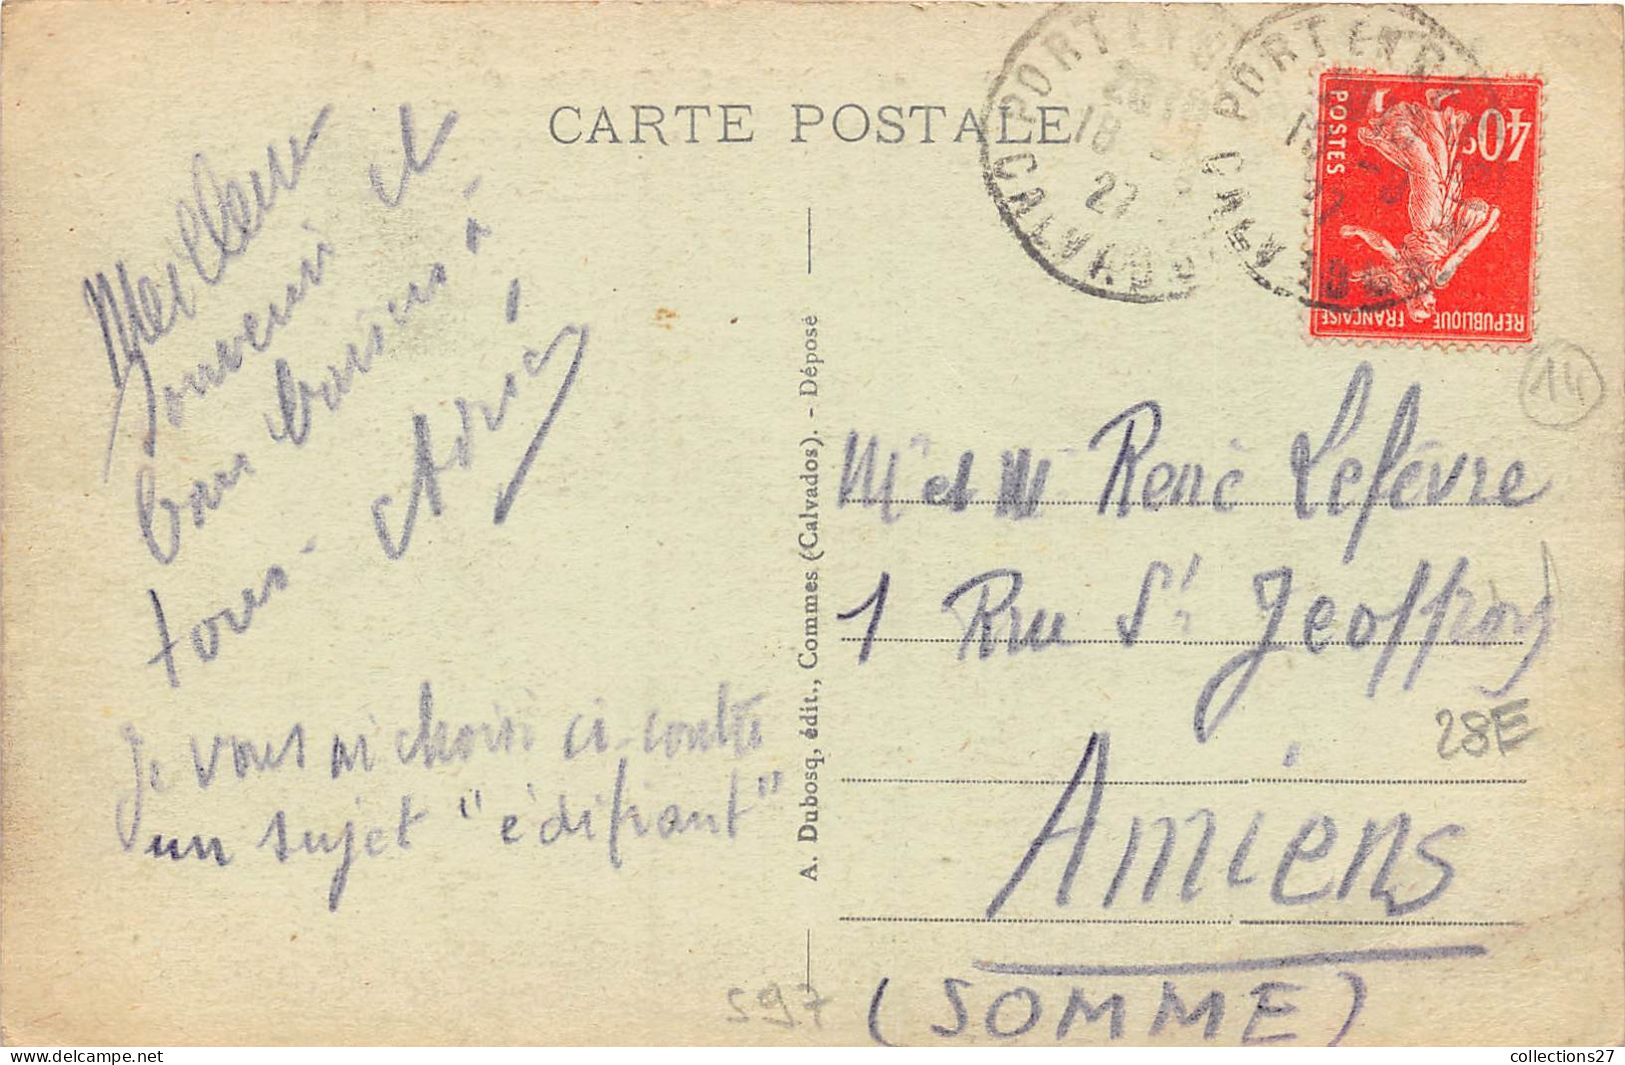 CARTE POSTALE
PORT EN B
PORT EN B
CALVADOS
CALVADOS
POSTES
40c
REPUBLIQUE FRANÇAISE
14
Meilleur
souvenir et
bons baisers à
tous. Adrien
Je vous ai choisi ci-contre
un sujet "édifiant"
A. Dubosq, édit., Commes (Calvados). - Déposé
Mr et Me René Lefèvre
1 Rue St Jeoffroy
28E
Amiens
(SOMME)
597
collections27